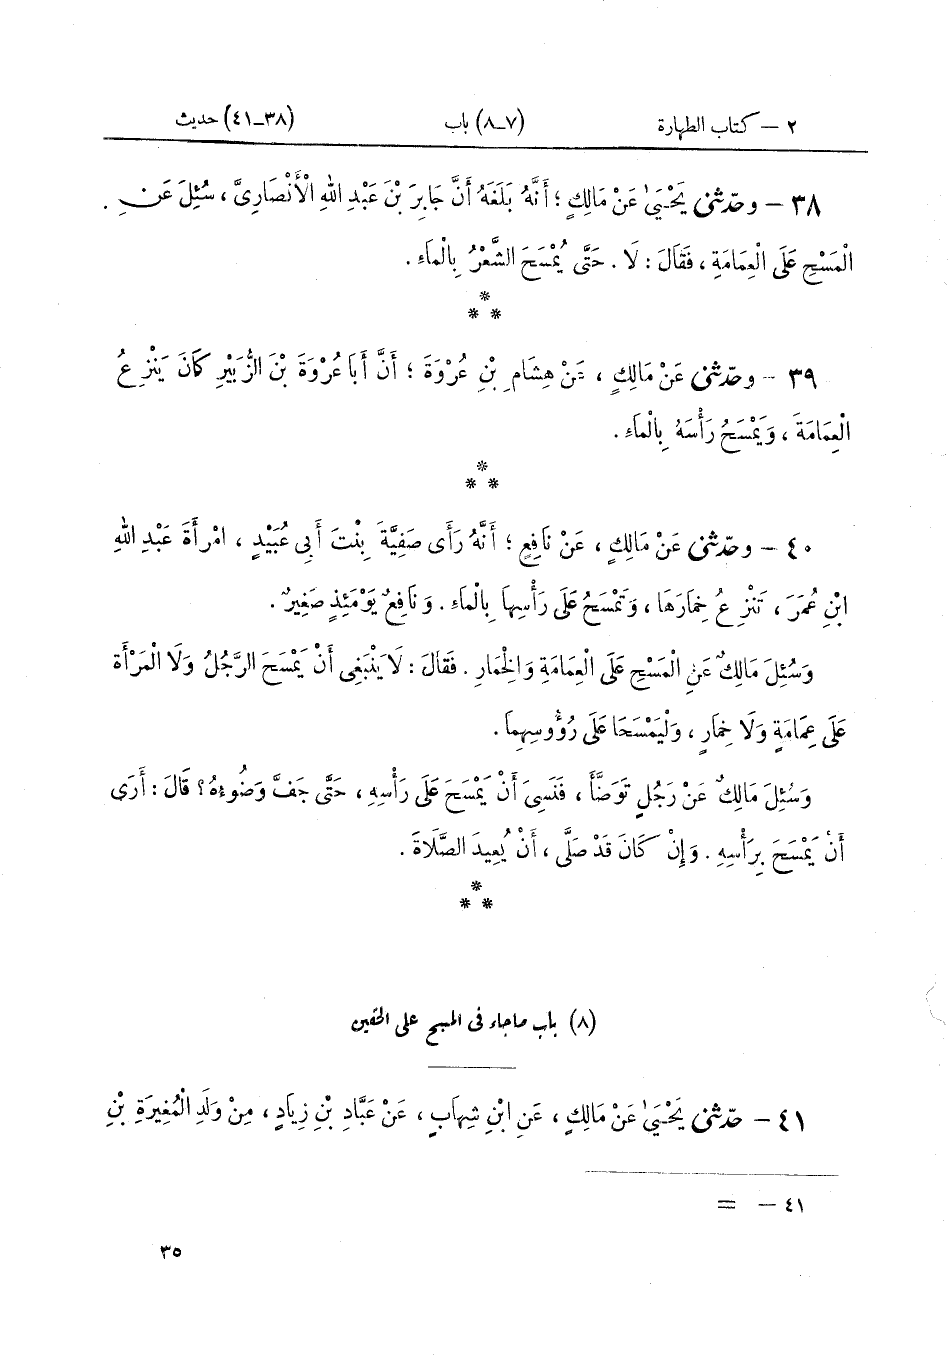 ٢ – كتاب الطهارة (٧ـ٨) باب (٣٨ـ٤١) حديث
٣٨ – وحدّثني يَحْيَىٰ عَنْ مَالِكٍ ؛ أَنَّهُ بَلَغَهُ أَنَّ جَابِرَ بْنَ عَبْدِ اللهِ الْأَنْصَارِىَّ ، سُئِلَ عَنِ
الْمَسْحِ عَلَى الْعِمَامَةِ ، فَقَالَ : لَا . حَتَّى يُمْسَحَ الشَّعْرُ بِالْمَاءِ .
*
* *
٣٩ – وحدّثني عَنْ مَالِكٍ ، عَنْ هِشَامِ بْنِ عُرْوَةَ ؛ أَنَّ أَبَا عُرْوَةَ بْنَ الزُّبَيْرِ كَانَ يَنْزِعُ
الْعِمَامَةَ ، وَيَمْسَحُ رَأْسَهُ بِالْمَاءِ .
*
* *
٤٠ – وحدّثني عَنْ مَالِكٍ ، عَنْ نَافِعٍ ؛ أَنَّهُ رَأَى صَفِيَّةَ بِنْتَ أَبِى عُبَيْدٍ ، امْرأَةَ عَبْدِ اللهِ
ابْنِ عُمَرَ ، تَنْزِعُ خِمَارَهَا ، وَتَمْسَحُ عَلَى رَأْسِهَا بِالْمَاءِ . وَنَافِعٌ يَوْمَئِذٍ صَغِيرٌ .
وَسُئِلَ مَالِكٌ عَنِ الْمَسْحِ عَلَى الْعِمَامَةِ وَالْخِمَارِ . فَقَالَ : لَا يَنْبَغِى أَنْ يَمْسَحَ الرَّجُلُ وَلَا الْمَرْأَةُ
عَلَى عِمَامَةٍ وَلَا خِمَارٍ ، وَلْيَمْسَحَا عَلَى رُؤُوسِهِمَا .
وَسُئِلَ مَالِكٌ عَنْ رَجُلٍ تَوَضَّأَ ، فَنَسِىَ أَنْ يَمْسَحَ عَلَى رَأْسِهِ ، حَتَّى جَفَّ وَضُوءُهُ ؟ قَالَ : أَرَى
أَنْ يَمْسَحَ بِرَأْسِهِ . وَإِنْ كَانَ قَدْ صَلَّى ، أَنْ يُعِيدَ الصَّلَاةَ .
*
* *
(٨) باب ماجاء فى المسح على الخفين
٤١ – حدّثني يَحْيَىٰ عَنْ مَالِكٍ ، عَنِ ابْنِ شِهَابٍ ، عَنْ عَبَّادِ بْنِ زِيَادٍ ، مِنْ وَلَدِ الْمُغِيرَةِ بْنِ
٤١ – =
٣٥